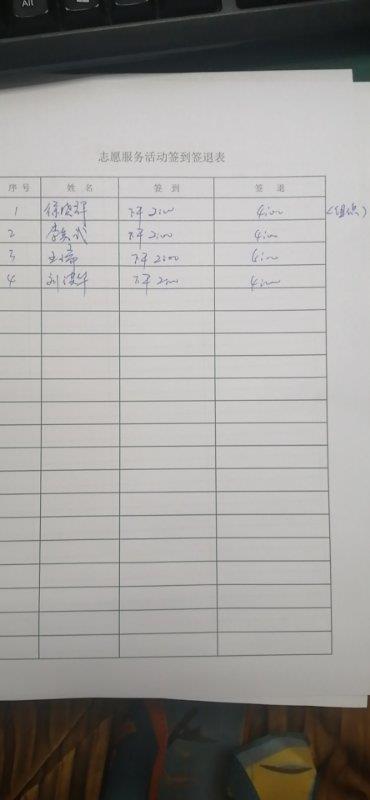 Alt
志愿服务活动签到签退表
序号 姓名 签到 签退
1 徐晓辉 下午 2:00 4:00
2 李 下午 2:00 4:00
3 王 下午 2:00 4:00
4 刘 下午 2:00 4:00